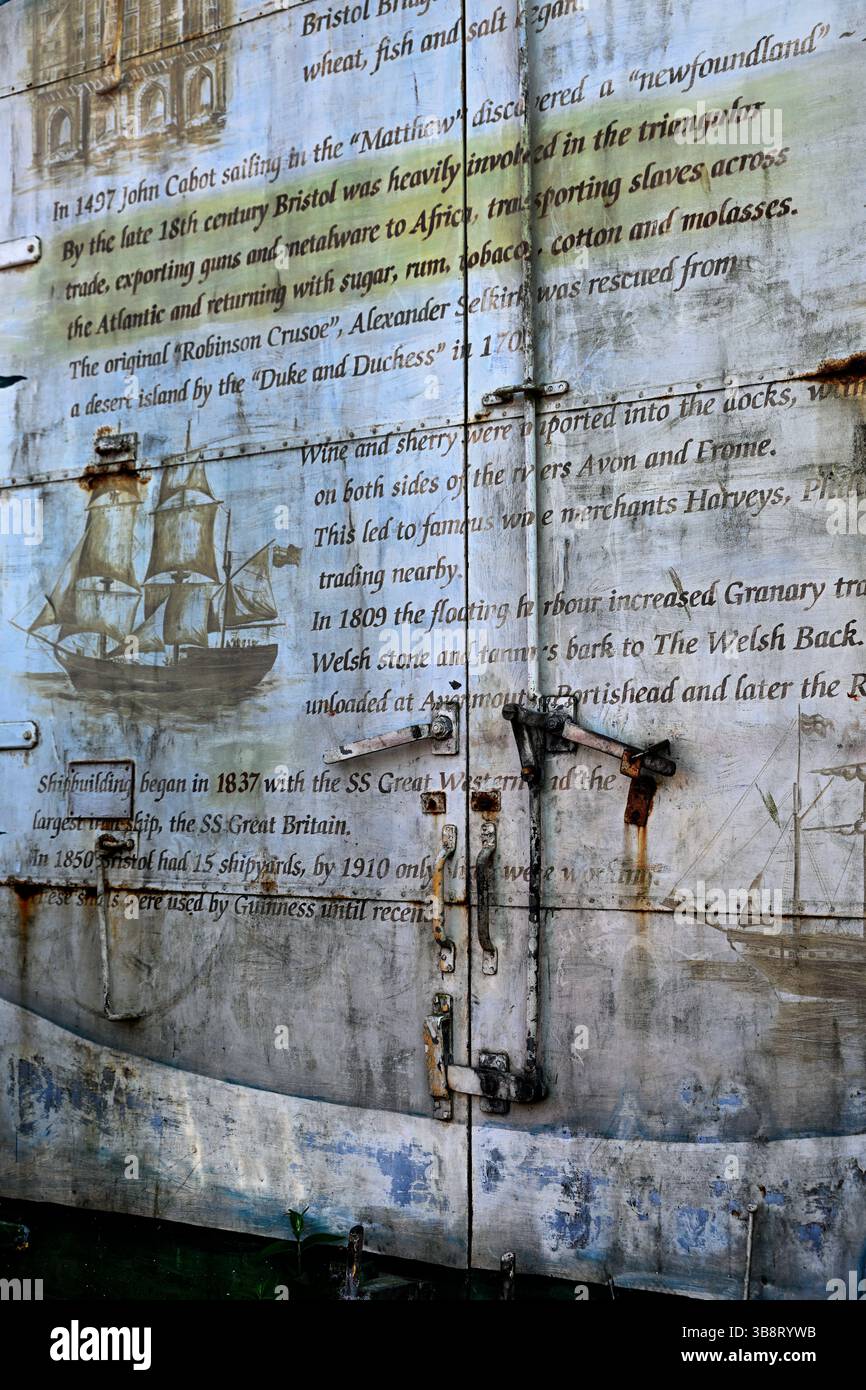 Bristol Bridg
wheat, fish and salt began.
In 1497 John Cabot sailing in the "Matthew" discovered a "newfoundland" ~
By the late 18th century Bristol was heavily involved in the triangular
trade, exporting guns and metalware to Africa, transporting slaves across
the Atlantic and returning with sugar, rum, tobacco, cotton and molasses.
The original "Robinson Crusoe", Alexander Selkirk was rescued from
a desert island by the "Duke and Duchess" in 170
Wine and sherry were imported into the docks, with
on both sides of the rivers Avon and Frome.
This led to famous wine merchants Harveys,
trading nearby.
In 1809 the floating harbour increased Granary tra
Welsh stone and tanners bark to The Welsh Back.
unloaded at Avonmouth, Portishead and later the R
Shipbuilding began in 1837 with the SS Great Western and the
largest iron ship, the SS Great Britain.
In 1850 Bristol had 15 shipyards, by 1910 only were working.
were used by Guinness until recen
alamy
Image ID: 3B8RYWB
www.alamy.com